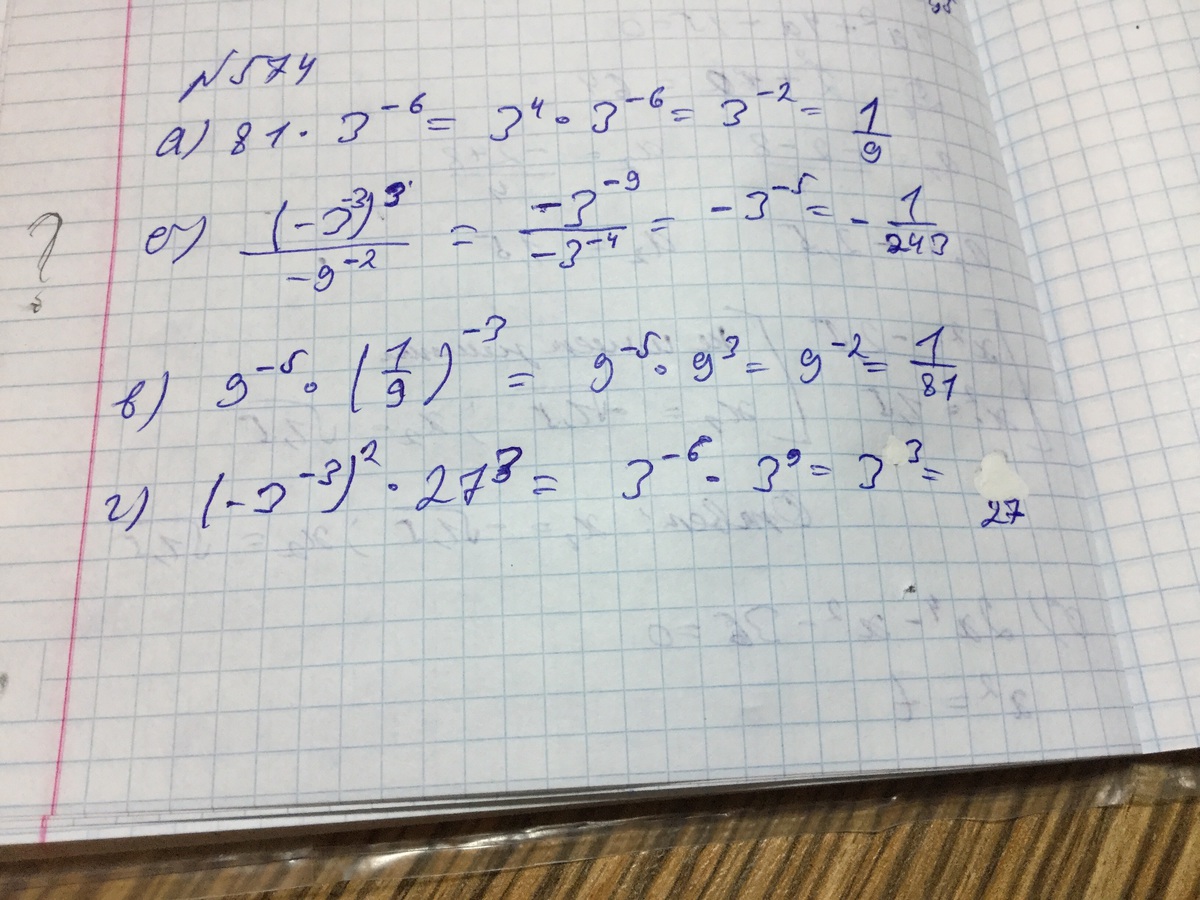 №574
а) 81 · 3⁻⁶ = 3⁴ · 3⁻⁶ = 3⁻² = 1/9
б) (-3⁻³)³/-9⁻² = -3⁻⁹/-3⁻⁴ = -3⁻⁵ = -1/243
?
в) 9⁻⁵ · (1/9)⁻³ = 9⁻⁵ · 9³ = 9⁻² = 1/81
г) (-3⁻³)² · 27³ = 3⁻⁶ · 3⁹ = 3³ = 27